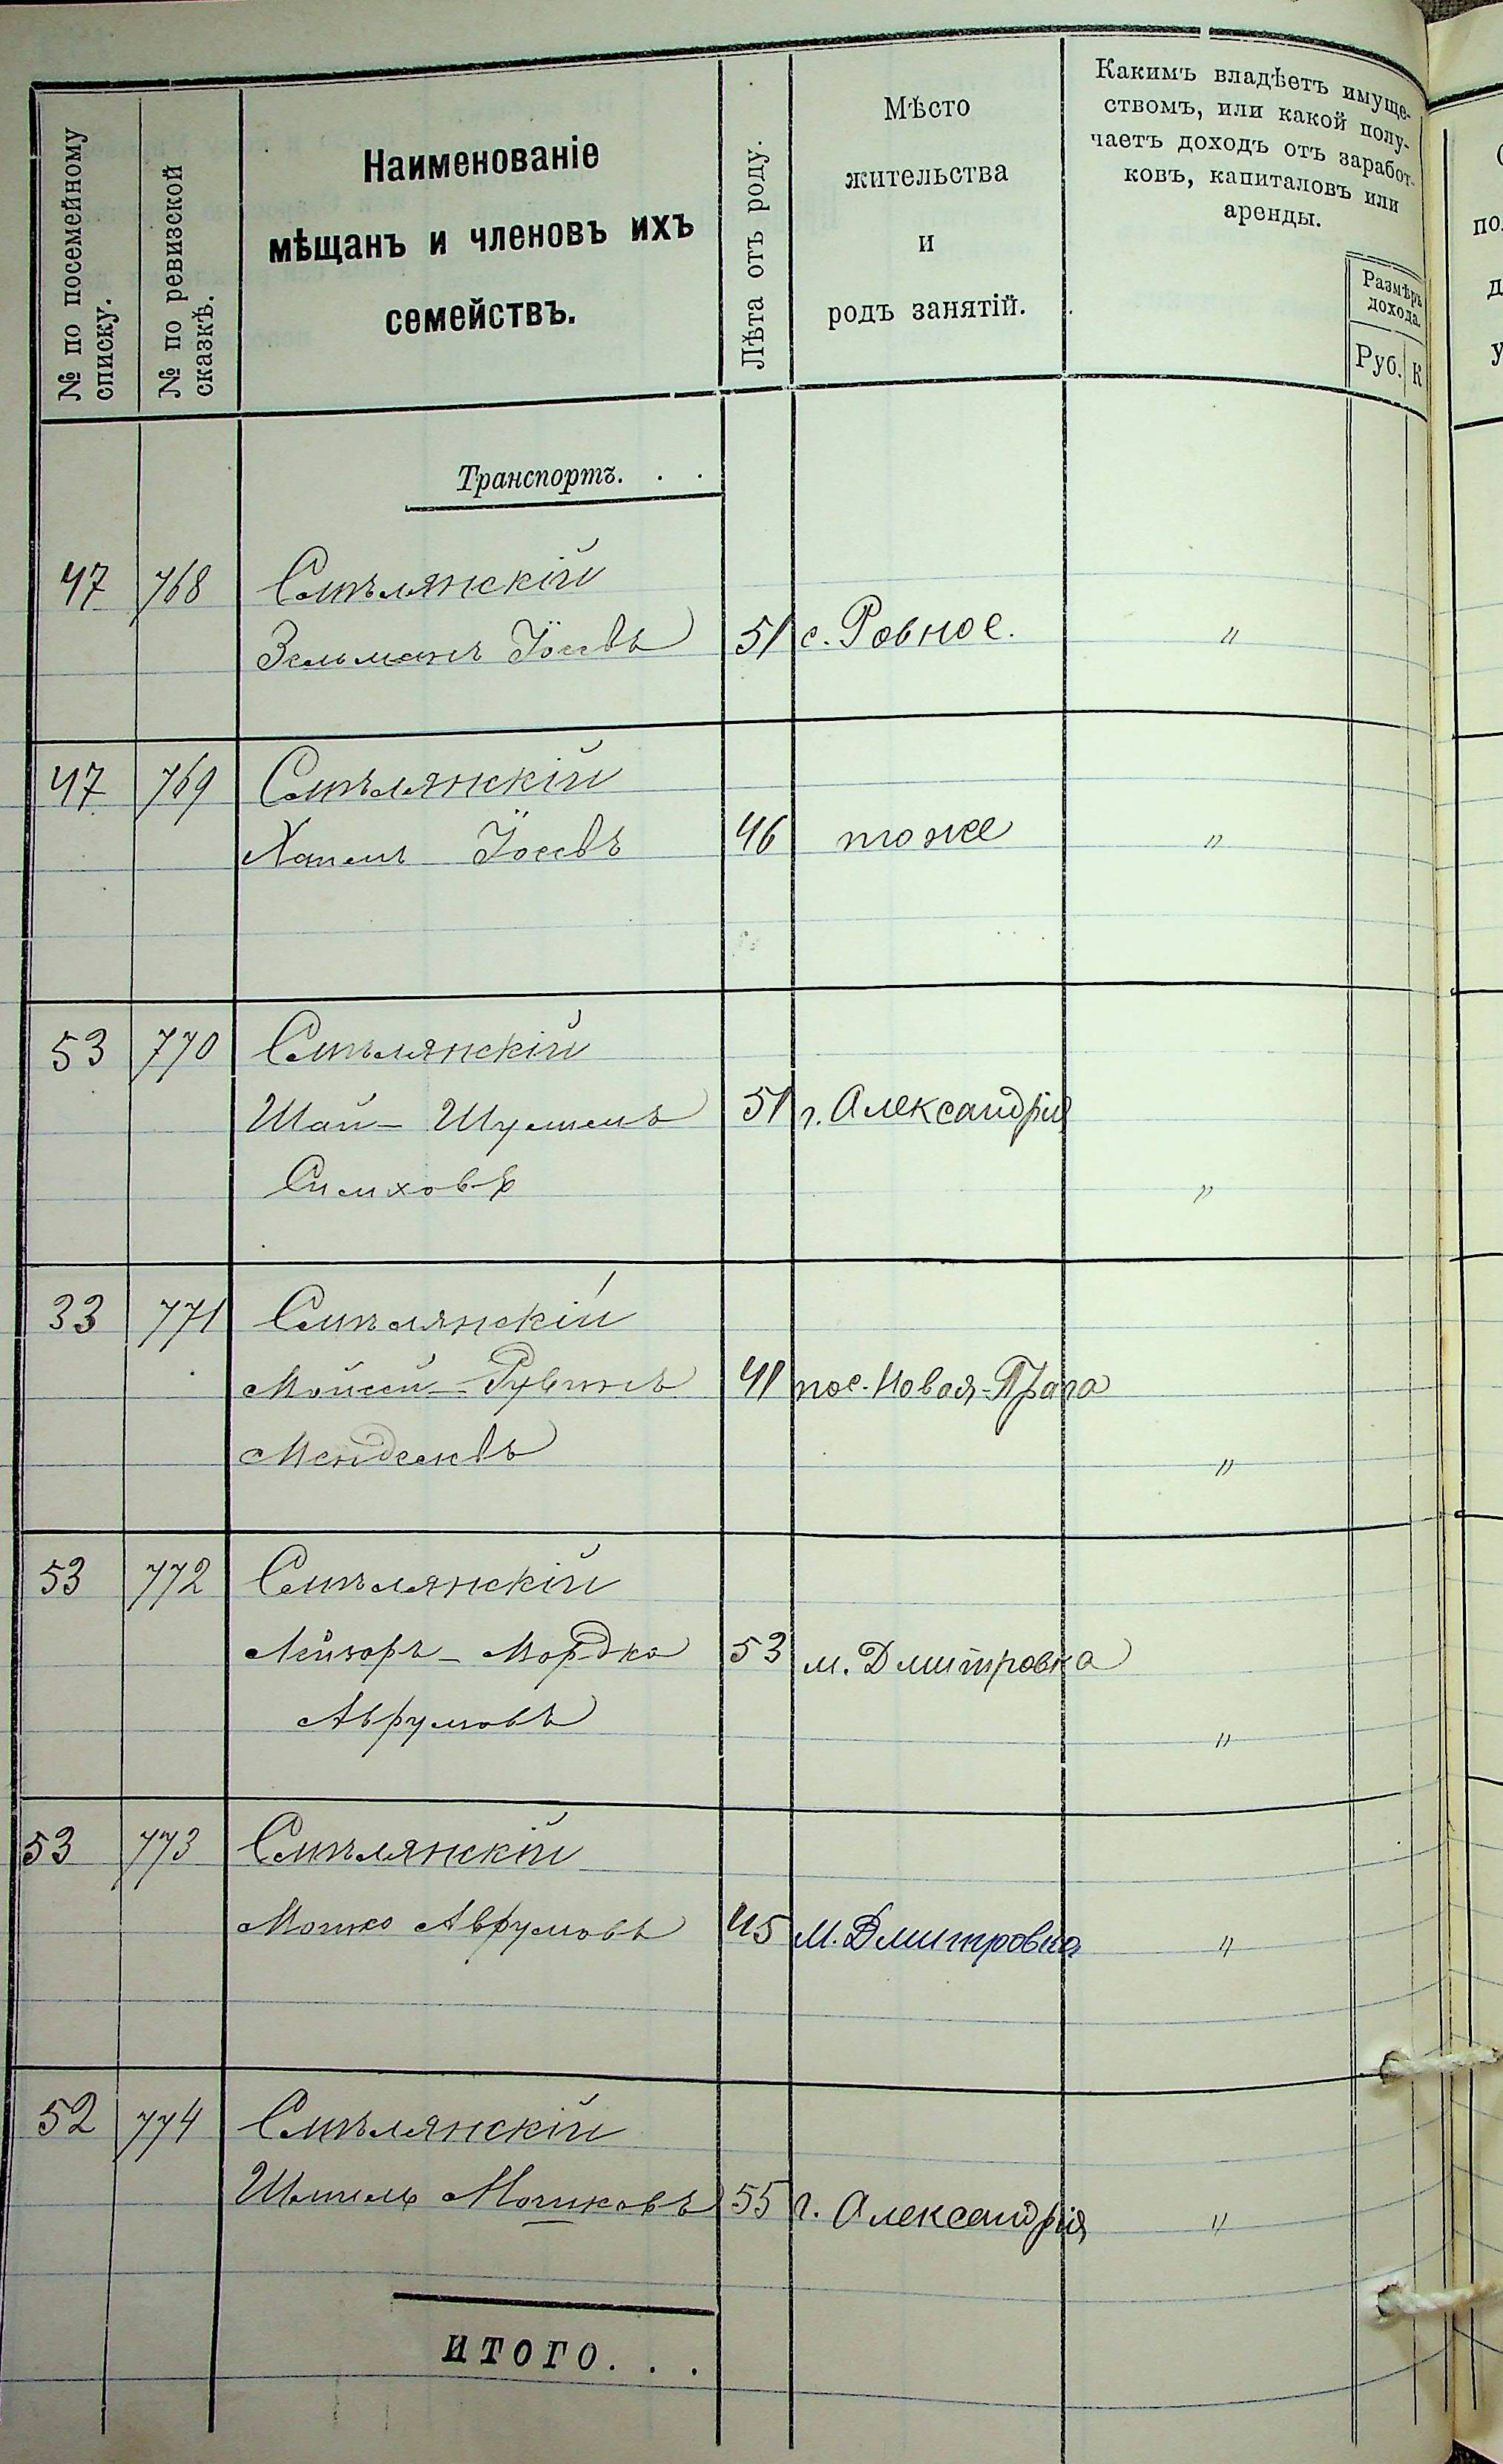 № по посемейному списку.
№ по ревизской сказкѣ.
Наименованіе
мѣщанъ и членовъ ихъ
семействъ.
Лѣта отъ роду.
Мѣсто
жительства
и
родъ занятій.
Какимъ владѣетъ имуще-
ствомъ, или какой полу-
чаетъ доходъ отъ заработ-
ковъ, капиталовъ или
аренды.
Размѣръ
дохода.
Руб. К
Транспортъ. . .
47 768 Смѣлянскій
Зельманъ Іосевъ 51 с. Ровное. "
47 769 Смѣлянскій
Хапель Іосевъ 46 тоже "
53 770 Смѣлянскій
Шай-Шулимъ 51 г. Александрія
Симховъ "
33 771 Смѣлянскій
Мойсей-Рувинъ 41 пос. Новая-Прага
Менделевъ "
53 772 Смѣлянскій
Лейзоръ-Мордко 53 м. Дмитровка
Аврумовъ "
53 773 Смѣлянскій
Мошко Аврумовъ 45 м. Дмитровка "
52 774 Смѣлянскій
Мошковъ 55 г. Александрія "
ИТОГО. . .